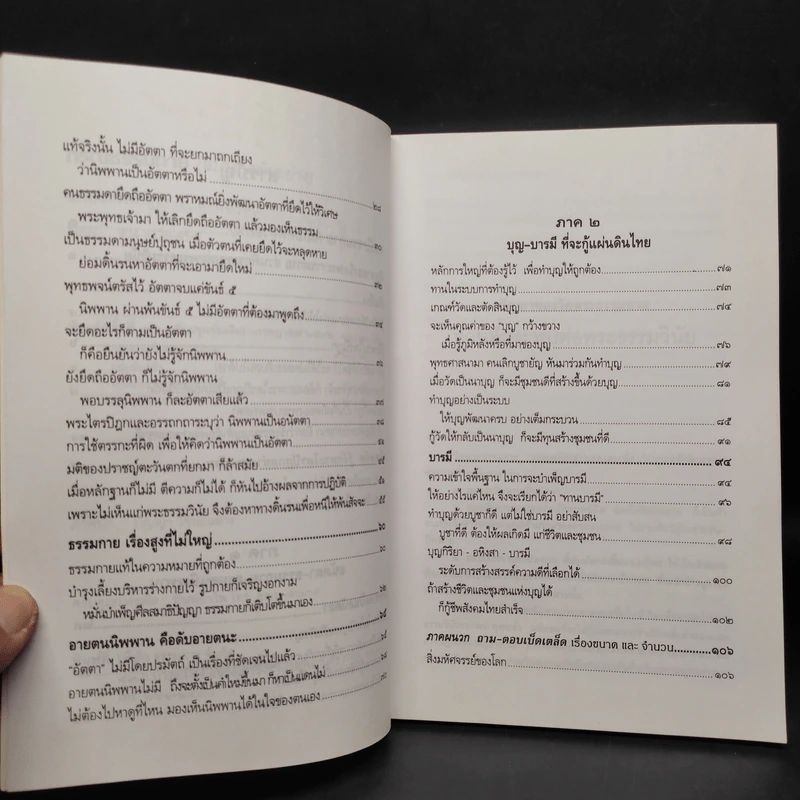 แท้จริงนั้น ไม่มีอัตตา ที่จะยกมาถกเถียง
ว่านิพพานเป็นอัตตาหรือไม่ ๒๘
คนธรรมดายึดถืออัตตา พราหมณ์ยิ่งพัฒนาอัตตาที่ยึดไว้ให้วิเศษ
พระพุทธเจ้ามา ให้เลิกยึดถืออัตตา แล้วมองเห็นธรรม ๓๐
เป็นธรรมดามนุษย์ปุถุชน เมื่อตัวตนที่เคยยึดไว้จะหลุดหาย
ย่อมดิ้นรนหาอัตตาที่จะเอามายึดใหม่ ๓๒
พุทธพจน์ตรัสไว้ อัตตาจบแค่ขันธ์ ๕
นิพพาน ผ่านพ้นขันธ์ ๕ ไม่มีอัตตาที่ต้องมาพูดถึง ๓๔
จะยึดอะไรก็ตามเป็นอัตตา
ก็คือยืนยันว่ายังไม่รู้จักนิพพาน
ยังยึดถืออัตตา ก็ไม่รู้จักนิพพาน
พอบรรลุนิพพาน ก็ละอัตตาเสียแล้ว
พระไตรปิฎกและอรรถกถาระบุว่า นิพพานเป็นอนัตตา
การใช้ตรรกะที่ผิด เพื่อให้คิดว่านิพพานเป็นอัตตา
มติของปราชญ์ตะวันตกที่ยกมา ก็ล้าสมัย
เมื่อหลักฐานก็ไม่มี ตีความก็ไม่ได้ ก็หันไปอ้างผลจากการปฏิบัติ
เพราะไม่เห็นแก่พระธรรมวินัย จึงต้องหาทางดิ้นรนเพื่อหนีให้พ้นสัจจะ
ธรรมกาย เรื่องสูงที่ไม่ใหญ่ ๖๐
ธรรมกายแท้ในความหมายที่ถูกต้อง ๖๐
บำรุงเลี้ยงบริหารร่างกายไว้ รูปกายก็เจริญงอกงาม
หมั่นบำเพ็ญศีลสมาธิปัญญา ธรรมกายก็เติบโตขึ้นมาเอง
อายตนนิพพาน คือดับอายตนะ
"อัตตา" ไม่มีโดยปรมัตถ์ เป็นเรื่องที่ชัดเจนไปแล้ว
อายตนนิพพานไม่มี ถึงจะตั้งเป็นคำใหม่ขึ้นมา ก็หาเป็นแดนไม่
ไม่ต้องไปหาดูที่ไหน มองเห็นนิพพานได้ในใจของตนเอง
ภาค ๒
บุญ-บารมี ที่จะกู้แผ่นดินไทย
หลักการใหญ่ที่ต้องรู้ไว้ เพื่อทำบุญให้ถูกต้อง ๗๑
ทานในระบบการทำบุญ ๗๓
เกณฑ์วัดและตัดสินบุญ ๗๔
จะเห็นคุณค่าของ "บุญ" กว้างขวาง
เมื่อรู้ภูมิหลังหรือที่มาของบุญ ๗๖
พุทธศาสนามา คนเลิกบูชายัญ หันมาร่วมกันทำบุญ ๗๙
เมื่อวัดเป็นนาบุญ ก็จะมีชุมชนดีที่สร้างขึ้นด้วยบุญ ๘๑
ทำบุญอย่างเป็นระบบ
ให้บุญพัฒนาครบ อย่างเต็มกระบวน ๘๕
กู้วัดให้กลับเป็นนาบุญ ก็จะมีทุนสร้างชุมชนที่ดี ๙๑
บารมี ๙๔
ความเข้าใจพื้นฐาน ในการจะบำเพ็ญบารมี ๙๔
ให้อย่างไรแค่ไหน จึงจะเรียกได้ว่า "ทานบารมี" ๙๖
ทำบุญด้วยบูชาก็ดี แต่ไม่ใช่บารมี อย่าสับสน
บูชาที่ดี ต้องให้ผลเกิดมี แก่ชีวิตและชุมชน ๙๘
บุญกิริยา - อหิงสา - บารมี
ระดับการสร้างสรรค์ความดีที่เลือกได้ ๑๐๐
ถ้าสร้างชีวิตและชุมชนแห่งบุญได้
ก็กู้ชีพสังคมไทยสำเร็จ ๑๐๒
ภาคผนวก ถาม-ตอบเบ็ดเตล็ด เรื่องขนาด และ จำนวน ๑๐๖
สิ่งมหัศจรรย์ของโลก ๑๐๖